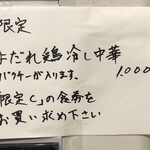 限定
よだれ鶏冷し中華
1,000
パクチーが入ります。
限定C」の食券を
お買い求め下さい